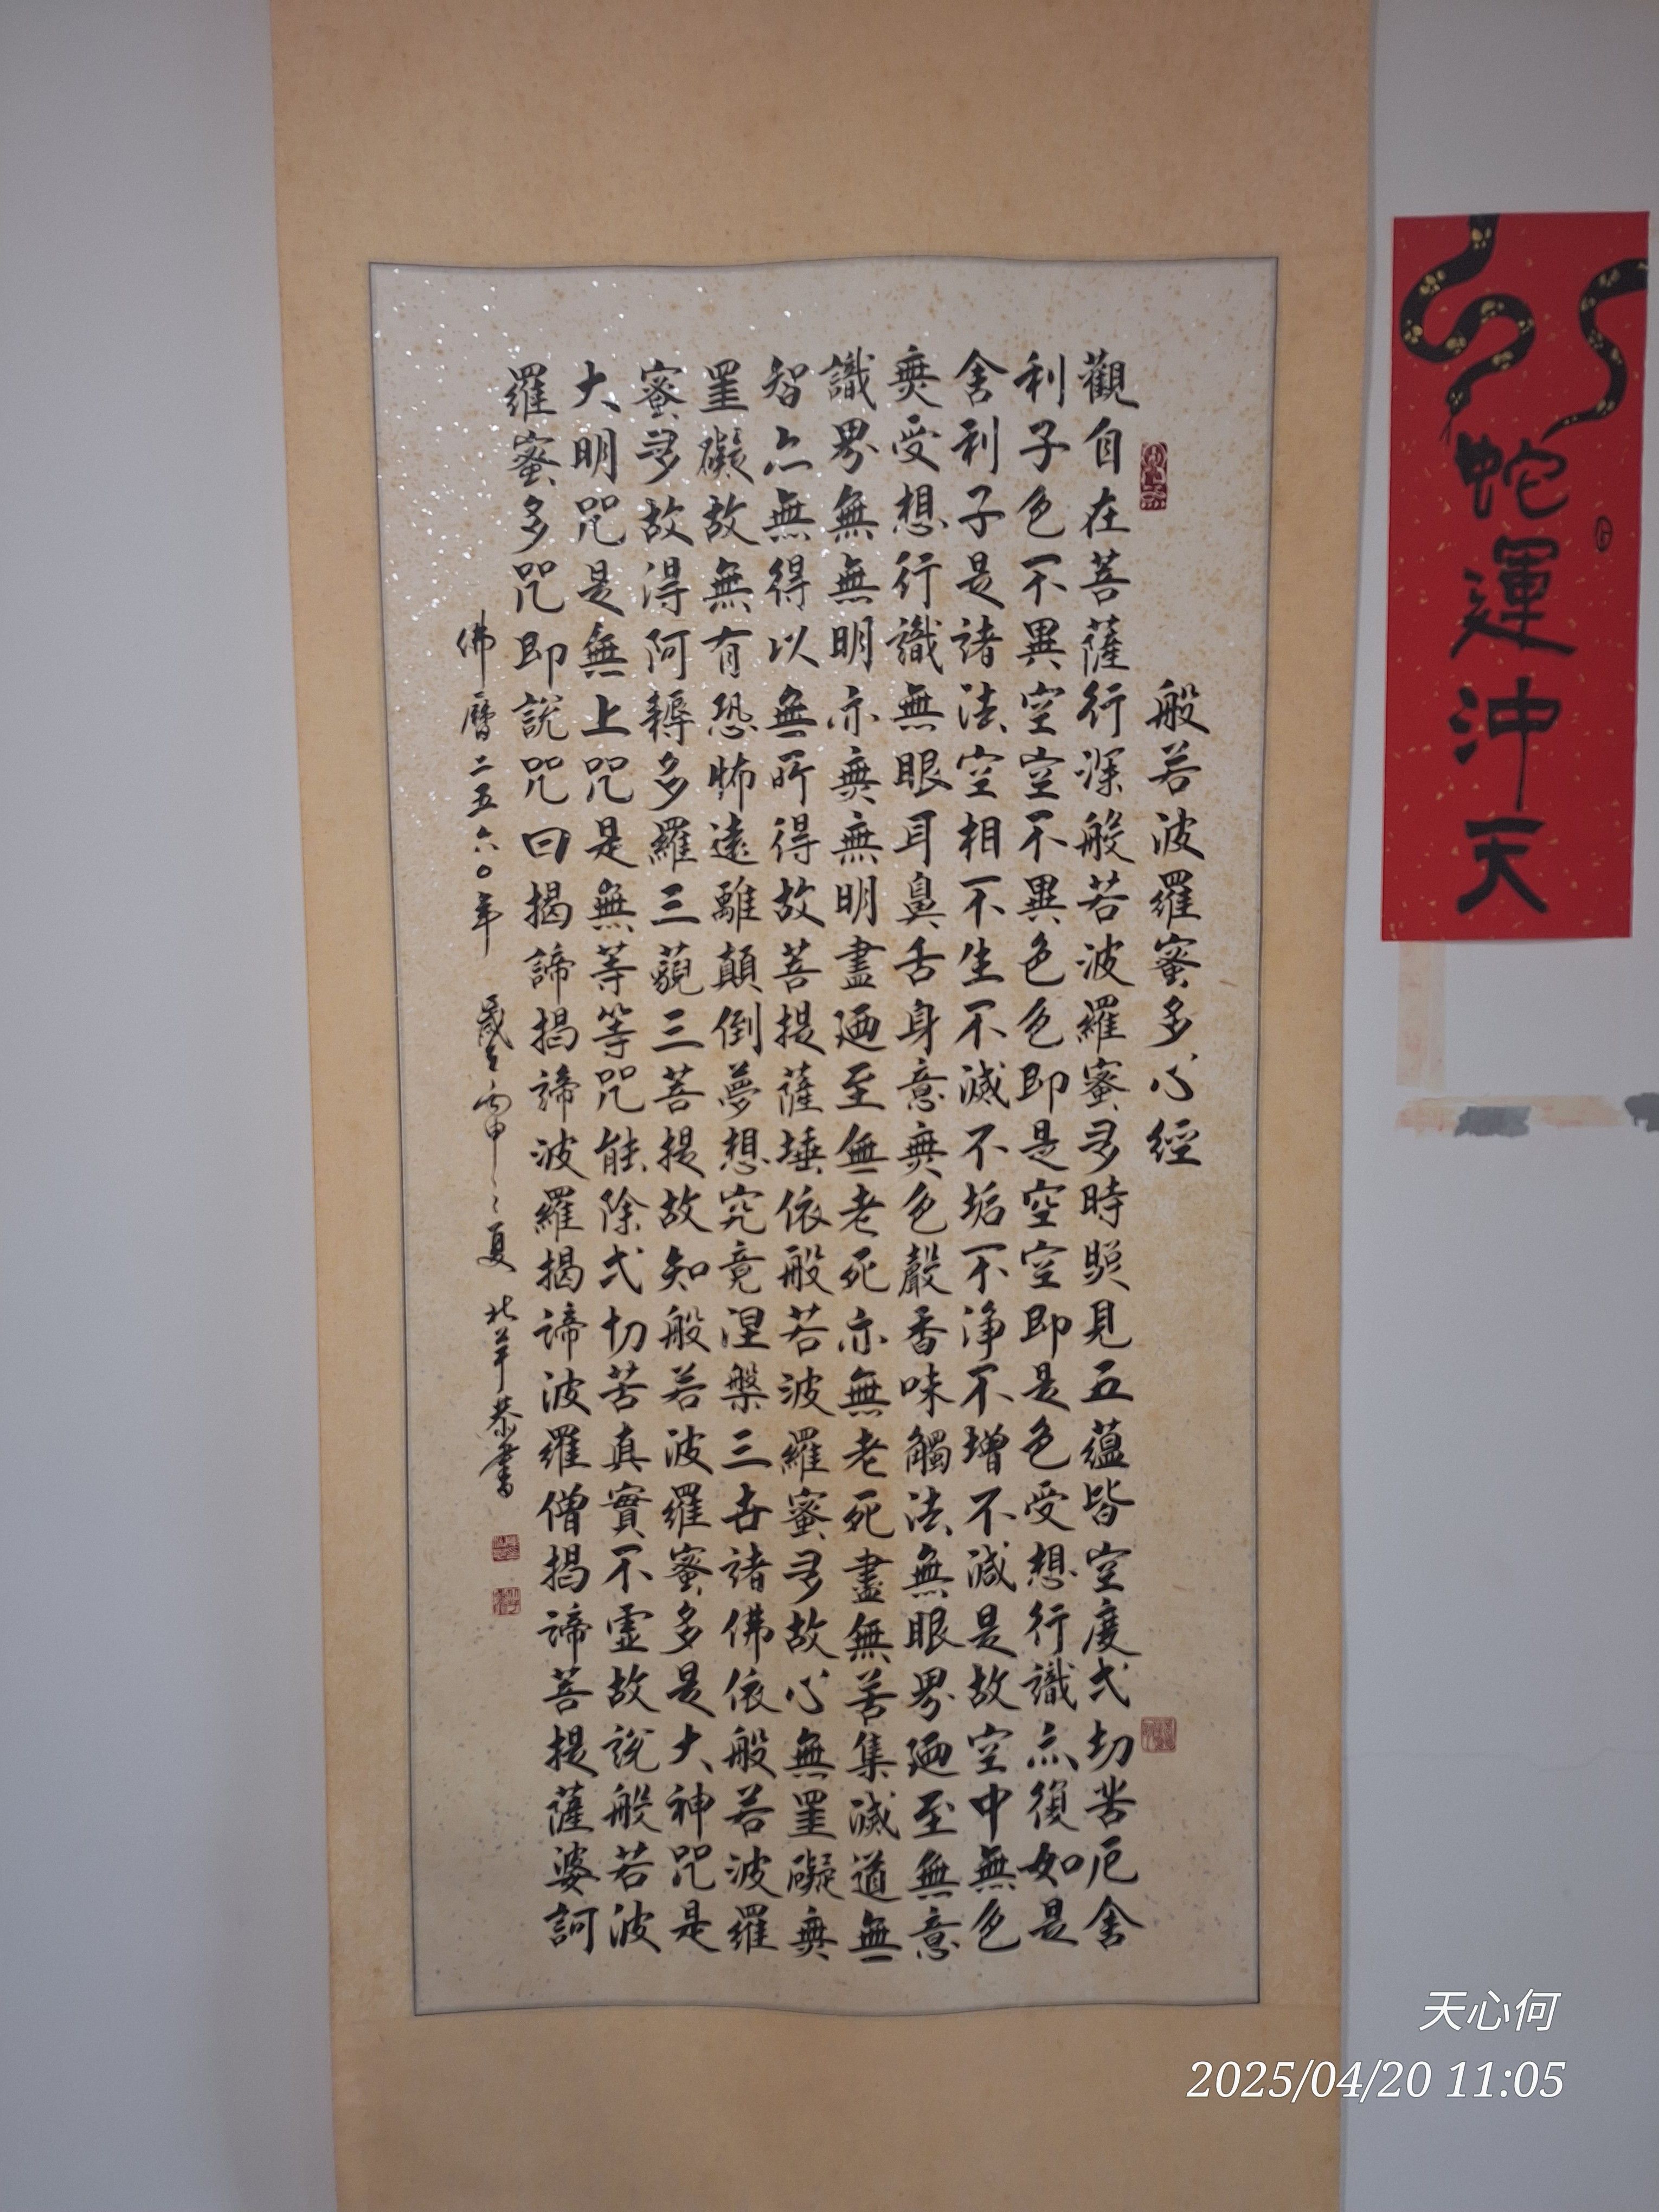 般若波羅蜜多心經
觀自在菩薩行深般若波羅蜜多時照見五蘊皆空度弌切苦厄舍
利子色不異空空不異色色即是空空即是色受想行識亦復如是
舍利子是諸法空相不生不滅不垢不淨不增不減是故空中無色
無受想行識無眼耳鼻舌身意無色聲香味觸法無眼界廼至無意
識界無無明亦無無明盡廼至無老死亦無老死盡無苦集滅道無
智亦無得以無所得故菩提薩埵依般若波羅蜜多故心無罣礙無
罣礙故無有恐怖遠離顛倒夢想究竟涅槃三世諸佛依般若波羅
蜜多故得阿耨多羅三藐三菩提故知般若波羅蜜多是大神咒是
大明咒是無上咒是無等等咒能除弌切苦真實不虛故說般若波
羅蜜多咒即說咒曰揭諦揭諦波羅揭諦波羅僧揭諦菩提薩婆訶
佛曆二五六〇年 歲在丙申之夏 北羊恭書
蛇運沖天
天心何
2025/04/20 11:05